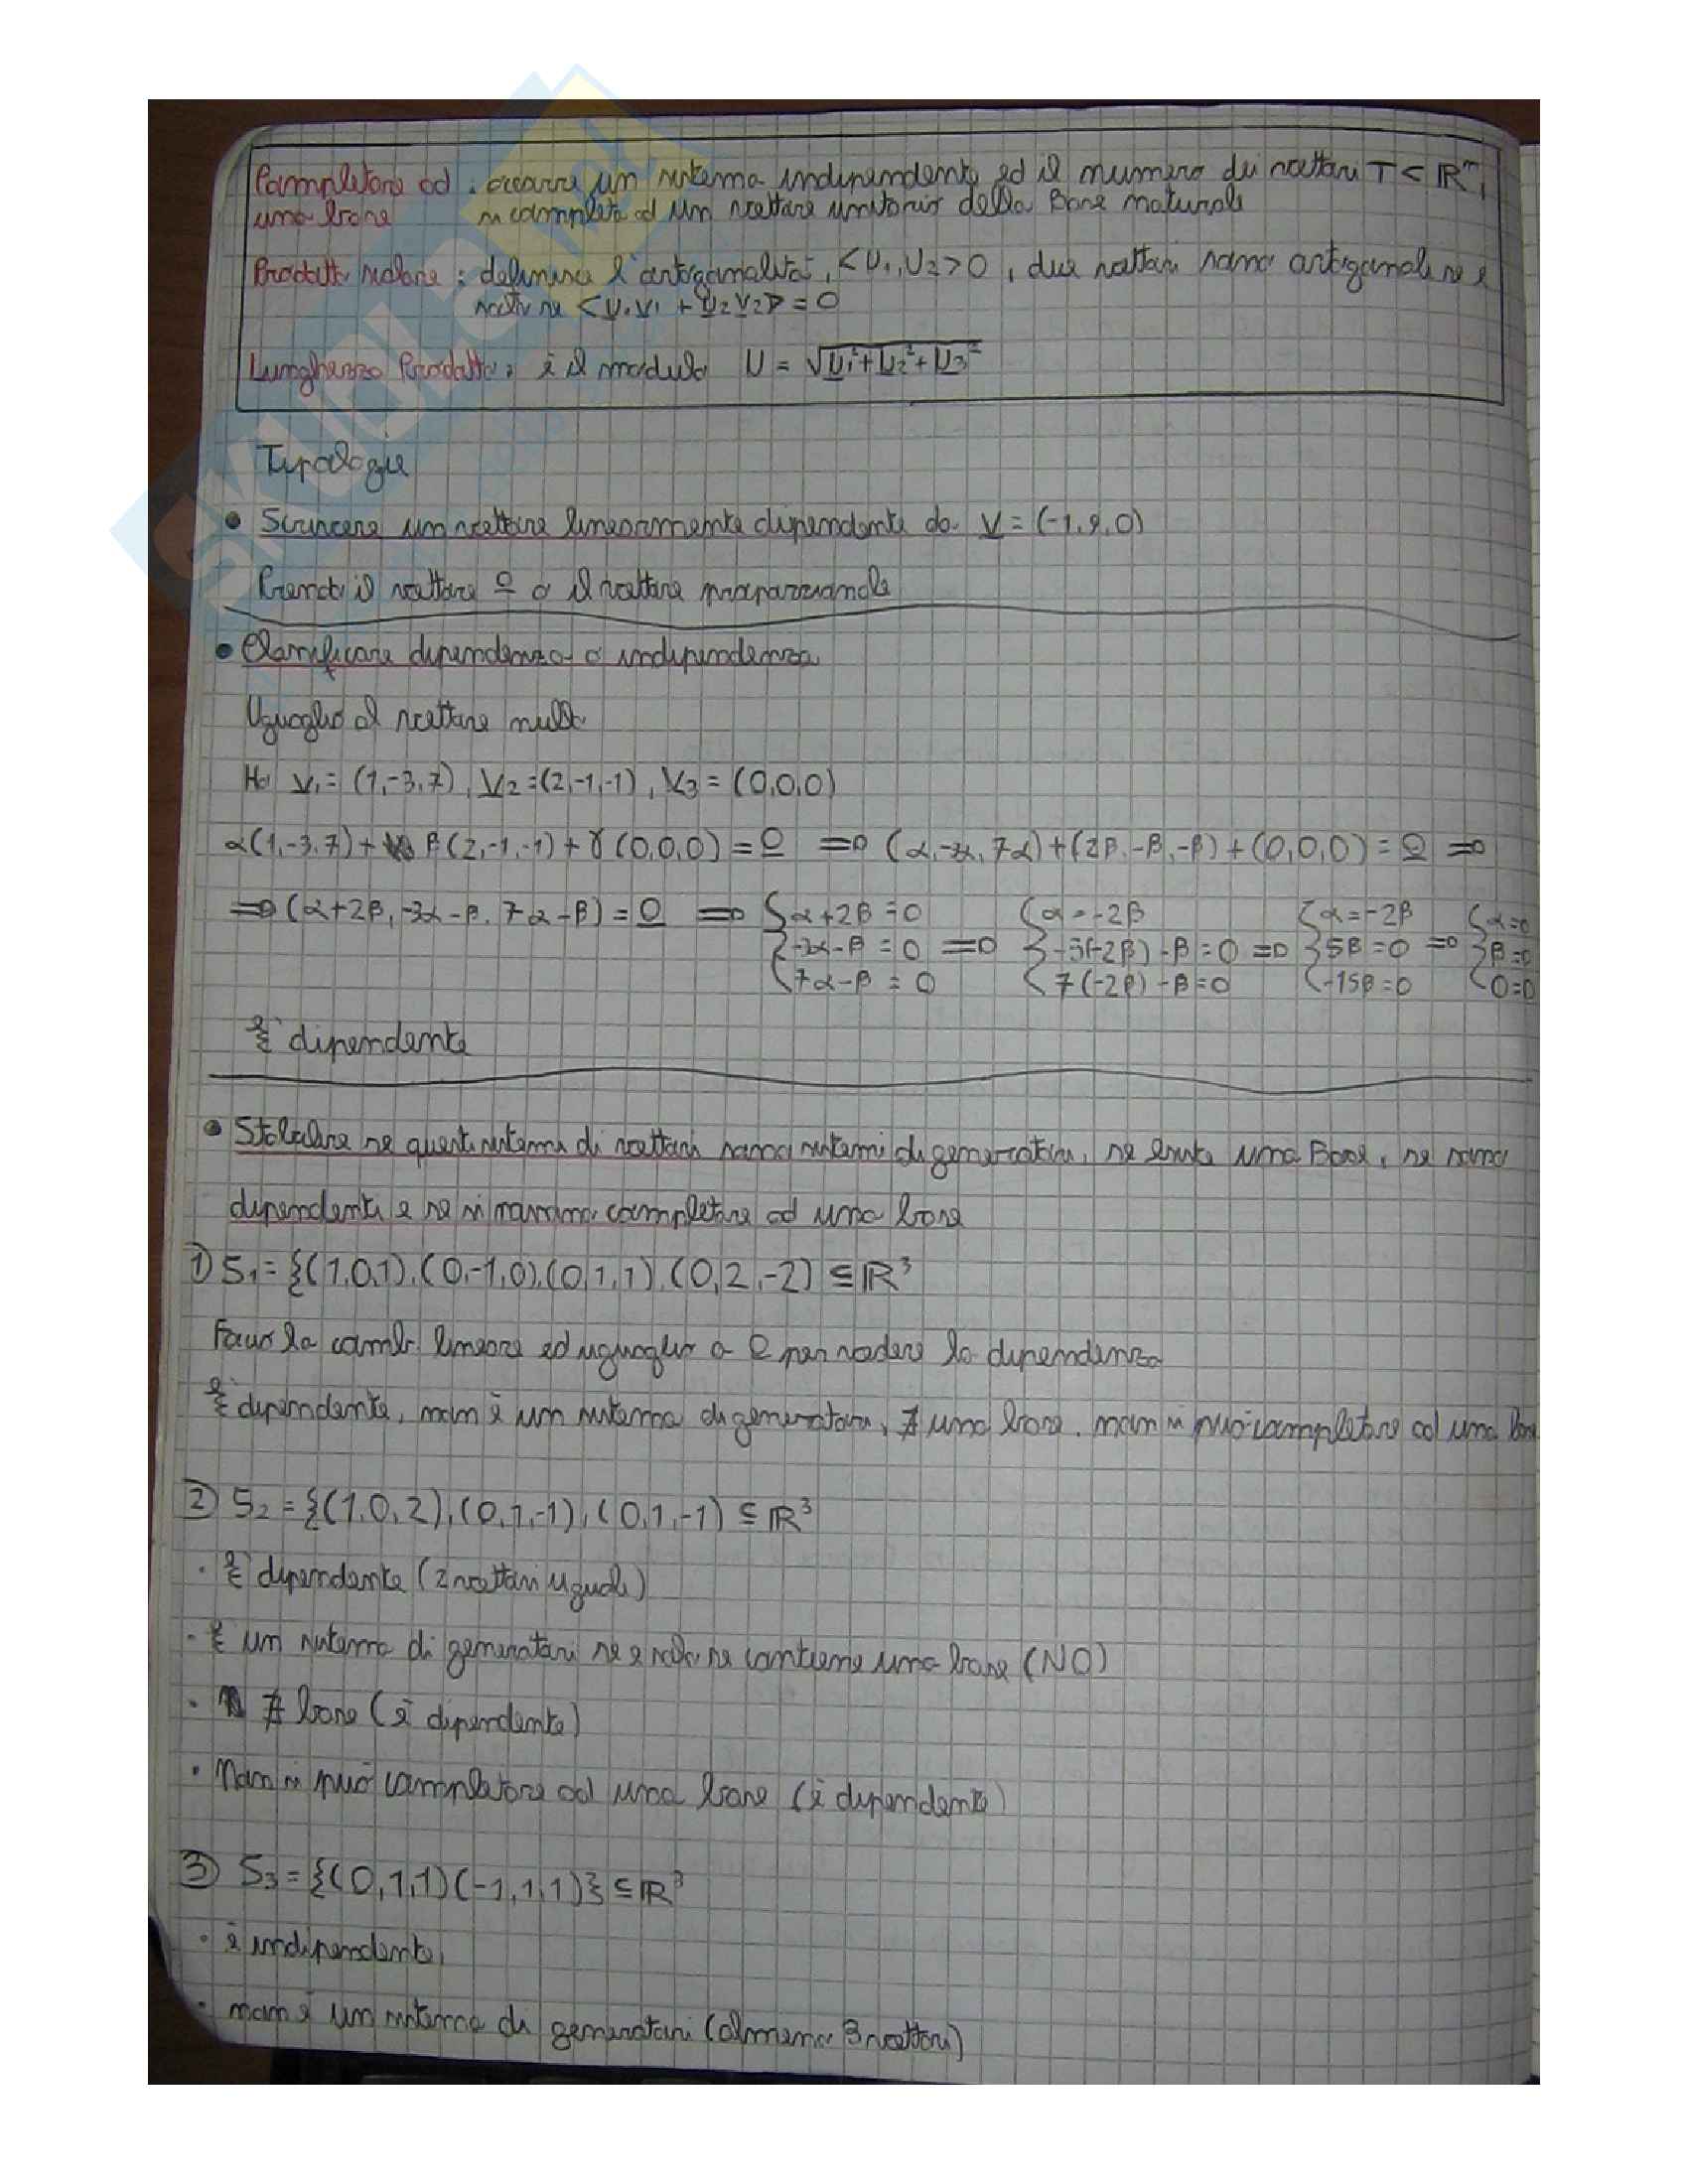 Completare ad : occorre un sistema indipendente ed il numero dei vettori T < ℝⁿ,
una base si completa ad un vettore unitario della Base naturale
Prodotto scalare : definisce l'ortogonalità, <U₁,U₂>0, due vettori sono ortogonali se e
solo se <U₁V₁ + U₂V₂> = 0
Lunghezza Prodotto: è il modulo U = √U₁²+U₂²+U₃²
Tipologie
• Scrivere un vettore linearmente dipendente da V = (-1,9,0)
Prendo il vettore 0 o il vettore proporzionale
• Classificare dipendenza o indipendenza
Uguaglio al vettore nullo
Ho V₁=(1,-3,7), V₂=(2,-1,-1), V₃=(0,0,0)
α(1,-3,7)+ β(2,-1,-1)+γ(0,0,0)=0 => (α,-3α,7α)+(2β,-β,-β)+(0,0,0)=0 =>
=> (α+2β,-3α-β,7α-β)=0 => {α+2β=0 {α=-2β {α=-2β {α=0
{-3α-β=0 => {-3(-2β)-β=0 => {5β=0 => {β=0
{7α-β=0 {7(-2β)-β=0 {-15β=0 {0=0
È dipendente
• Stabilire se questi sistemi di vettori sono sistemi di generatori, se esiste una Base, se sono
dipendenti e se si possono completare ad una base
1) S₁={(1,0,1),(0,-1,0),(0,1,1),(0,2,-2) ⊆ℝ³
Faccio la comb. lineare ed uguaglio a 0 per vedere la dipendenza
È dipendente, non è un sistema di generatori, ∄ una base, non si può completare ad una base
2) S₂={(1,0,2),(0,1,-1),(0,1,-1) ⊆ℝ³
· È dipendente (2 vettori uguali)
· È un sistema di generatori se e solo se contiene una base (NO)
· ∄ base (è dipendente)
· Non si può completare ad una base (è dipendente)
3) S₃={(0,1,1)(-1,1,1)}⊆ℝ³
· è indipendente,
· non è un sistema di generatori (almeno 3 vettori)
SKUOLA.net